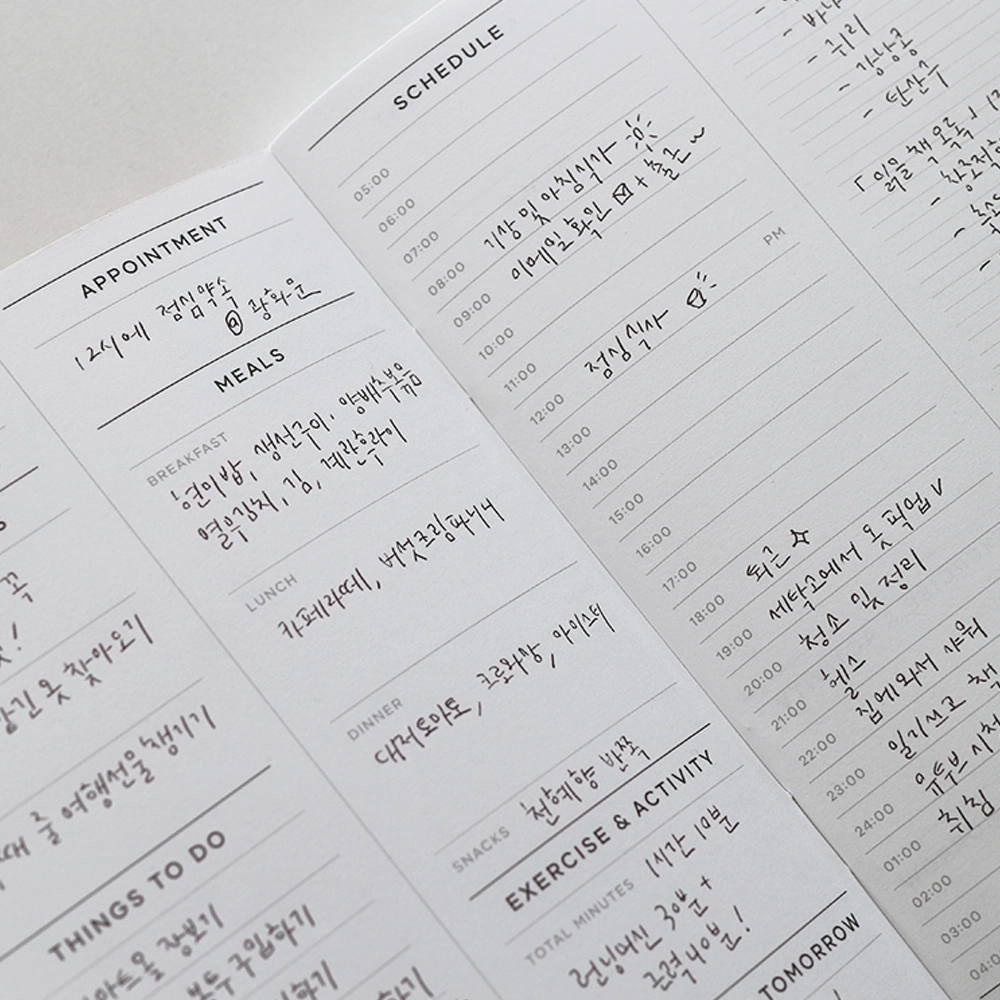 꼭
맡긴 옷 찾아오기
줄 여행선물 챙기기
THINGS TO DO
장보기
봉투 구입하기
하기
하기
APPOINTMENT
12시에 점심약속
@ 광화문
MEALS
BREAKFAST
현미밥, 생선구이, 양배추볶음
열무김치, 김, 계란후라이
LUNCH
카페라떼, 버섯크림파니니
DINNER
대저토마토, 크로와상, 아이스티
SNACKS
천혜향 반쪽
EXERCISE & ACTIVITY
TOTAL MINUTES
1시간 10분
런닝머신 30분 +
근력 40분!
TOMORROW
SCHEDULE
05:00
06:00
07:00 기상 및 아침식사
08:00 이메일 확인 + 출근~
09:00
10:00
PM
11:00
12:00 점심식사
13:00
14:00
15:00
16:00
17:00
18:00 퇴근
19:00 세탁소에서 옷 픽업 V
20:00 청소 및 정리
21:00 헬스
22:00 집에 와서 샤워
23:00 일기쓰고 책
24:00 유투브 시청
01:00 취침
02:00
03:00
04:0
- 바나
- 귀리
- 강낭콩
- 탄산수
「읽을 책 목록」
- 창조적
-
-